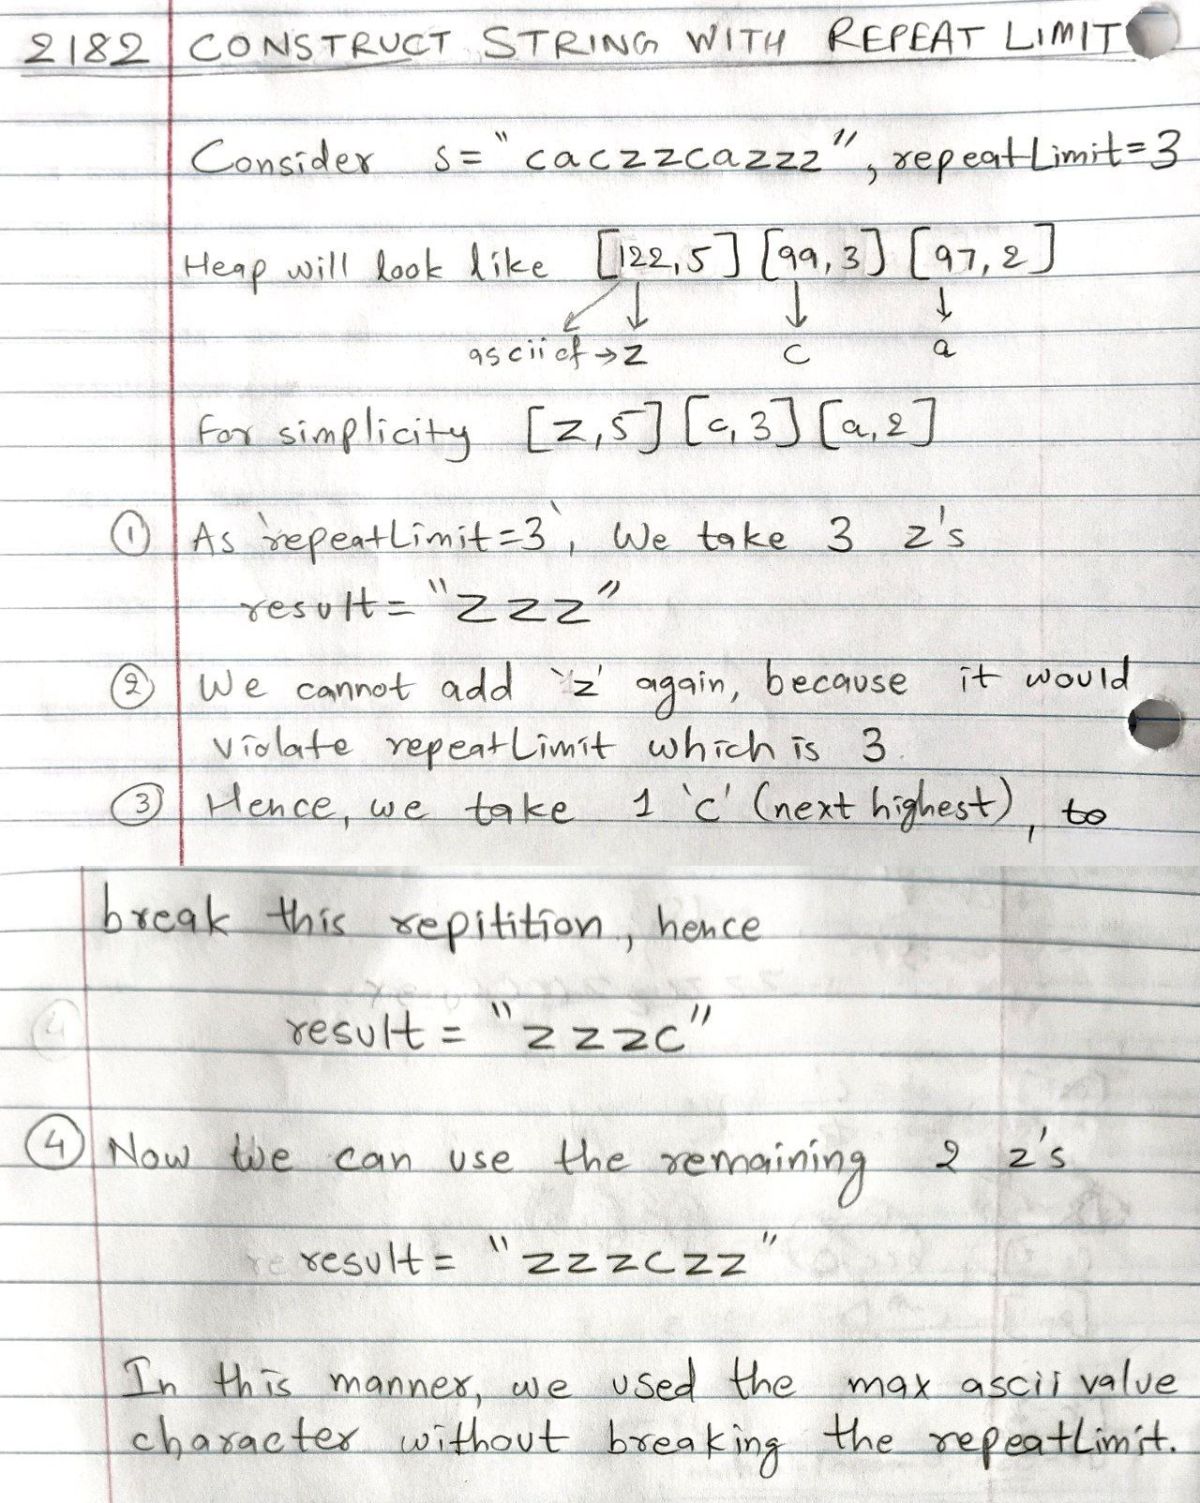 2182 CONSTRUCT STRING WITH REPEAT LIMIT
Consider s="caczzcazzz", repeatLimit=3
Heap will look like [122,5] [99,3] [97,2]
ascii of → z c a
For simplicity [z,5] [c,3] [a,2]
① As `repeatLimit=3`, We take 3 z's
result = "zzz"
② We cannot add `z' again, because it would
violate repeatLimit which is 3.
③ Hence, we take 1 'c' (next highest), to
break this repitition, hence
result = "zzzc"
④ Now We can use the remaining 2 z's
result = "zzzczz"
In this manner, we used the max ascii value
character without breaking the repeatLimit.